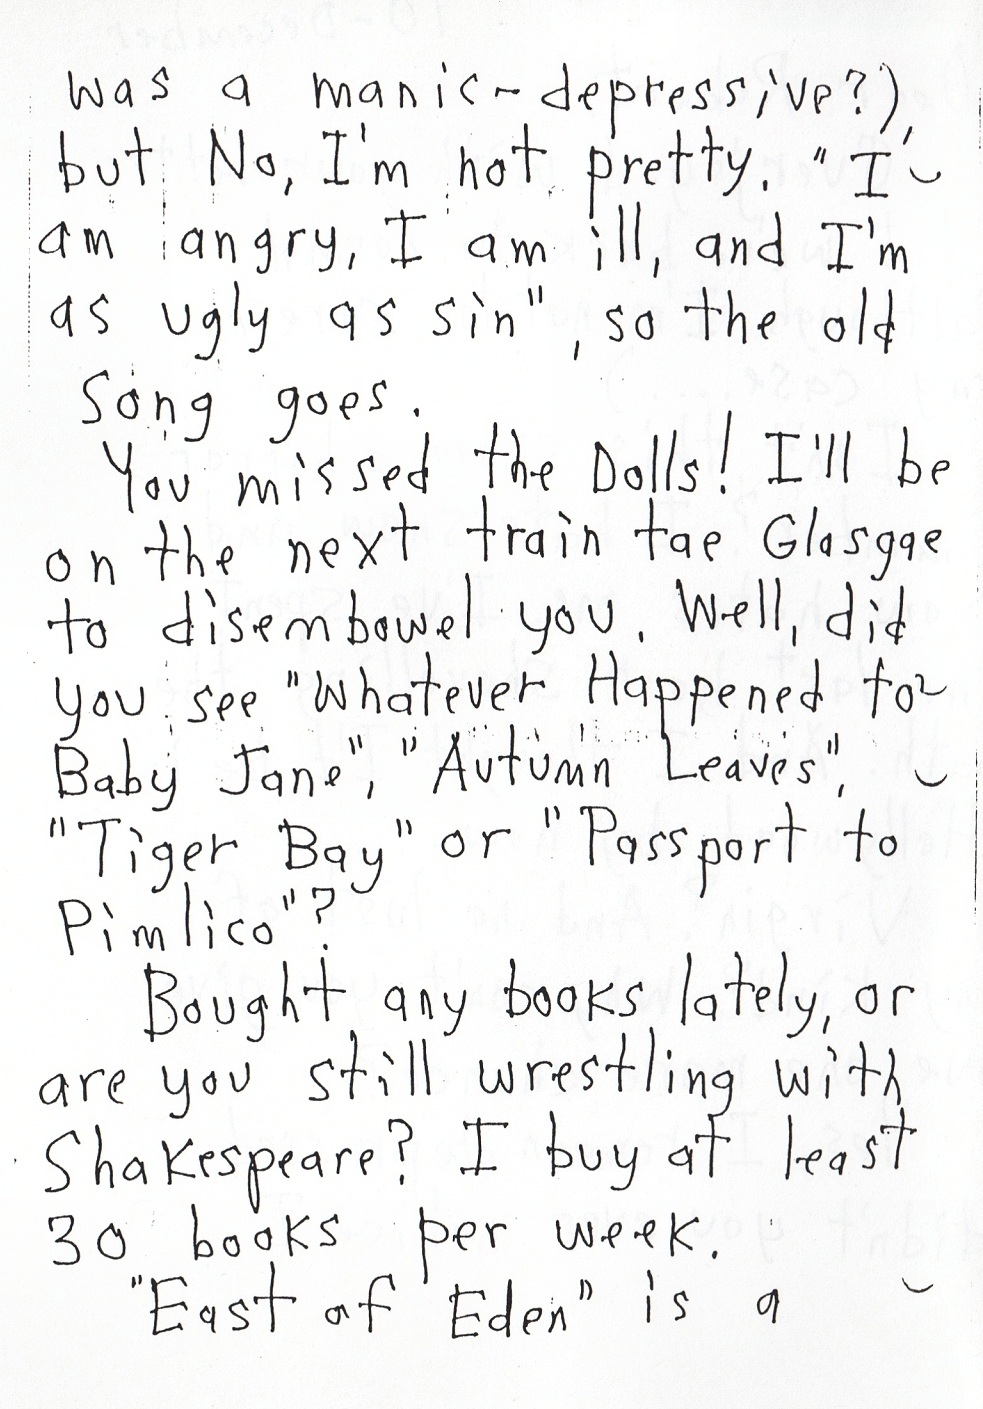 was a manic-depressive?),
but No, I'm not pretty. "I
am angry, I am ill, and I'm
as ugly as sin", so the old
song goes.
You missed the Dolls! I'll be
on the next train tae Glasgae
to disembowel you. Well, did
you see "Whatever Happened to
Baby Jane", "Autumn Leaves",
"Tiger Bay" or "Passport to
Pimlico"?
Bought any books lately, or
are you still wrestling with
Shakespeare? I buy at least
30 books per week.
"East of Eden" is a